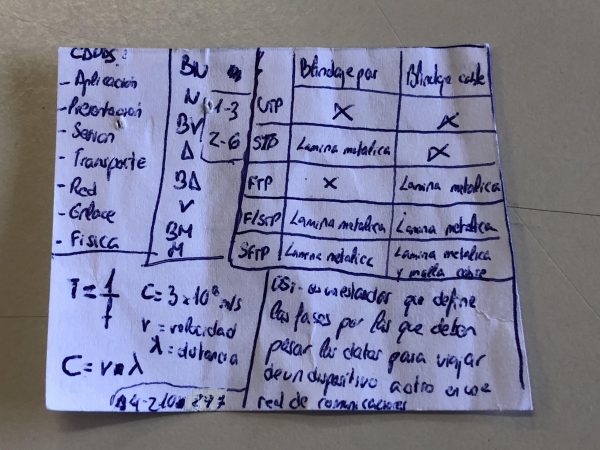 CAPAS:
- Aplicación
- Presentación
- Sesión
- Transporte
- Red
- Enlace
- Física
BN
N
BV
A
BA
V
BM
M
1-3
2-6
Blindaje par Blindaje cable
UTP X X
STP Lamina metalica X
FTP X Lamina metalica
F/STP Lamina metalica Lamina metalica
SFTP Lamina metalica Lamina metalica
y malla
T = 1/f
C = 3 x 10⁸ m/s
v = velocidad
λ = distancia
C = v · λ
OSI- es un estandar que define
las fases por las que deben
pasar los datos para viajar
de un dispositivo a otro en una
real de comunicaciones